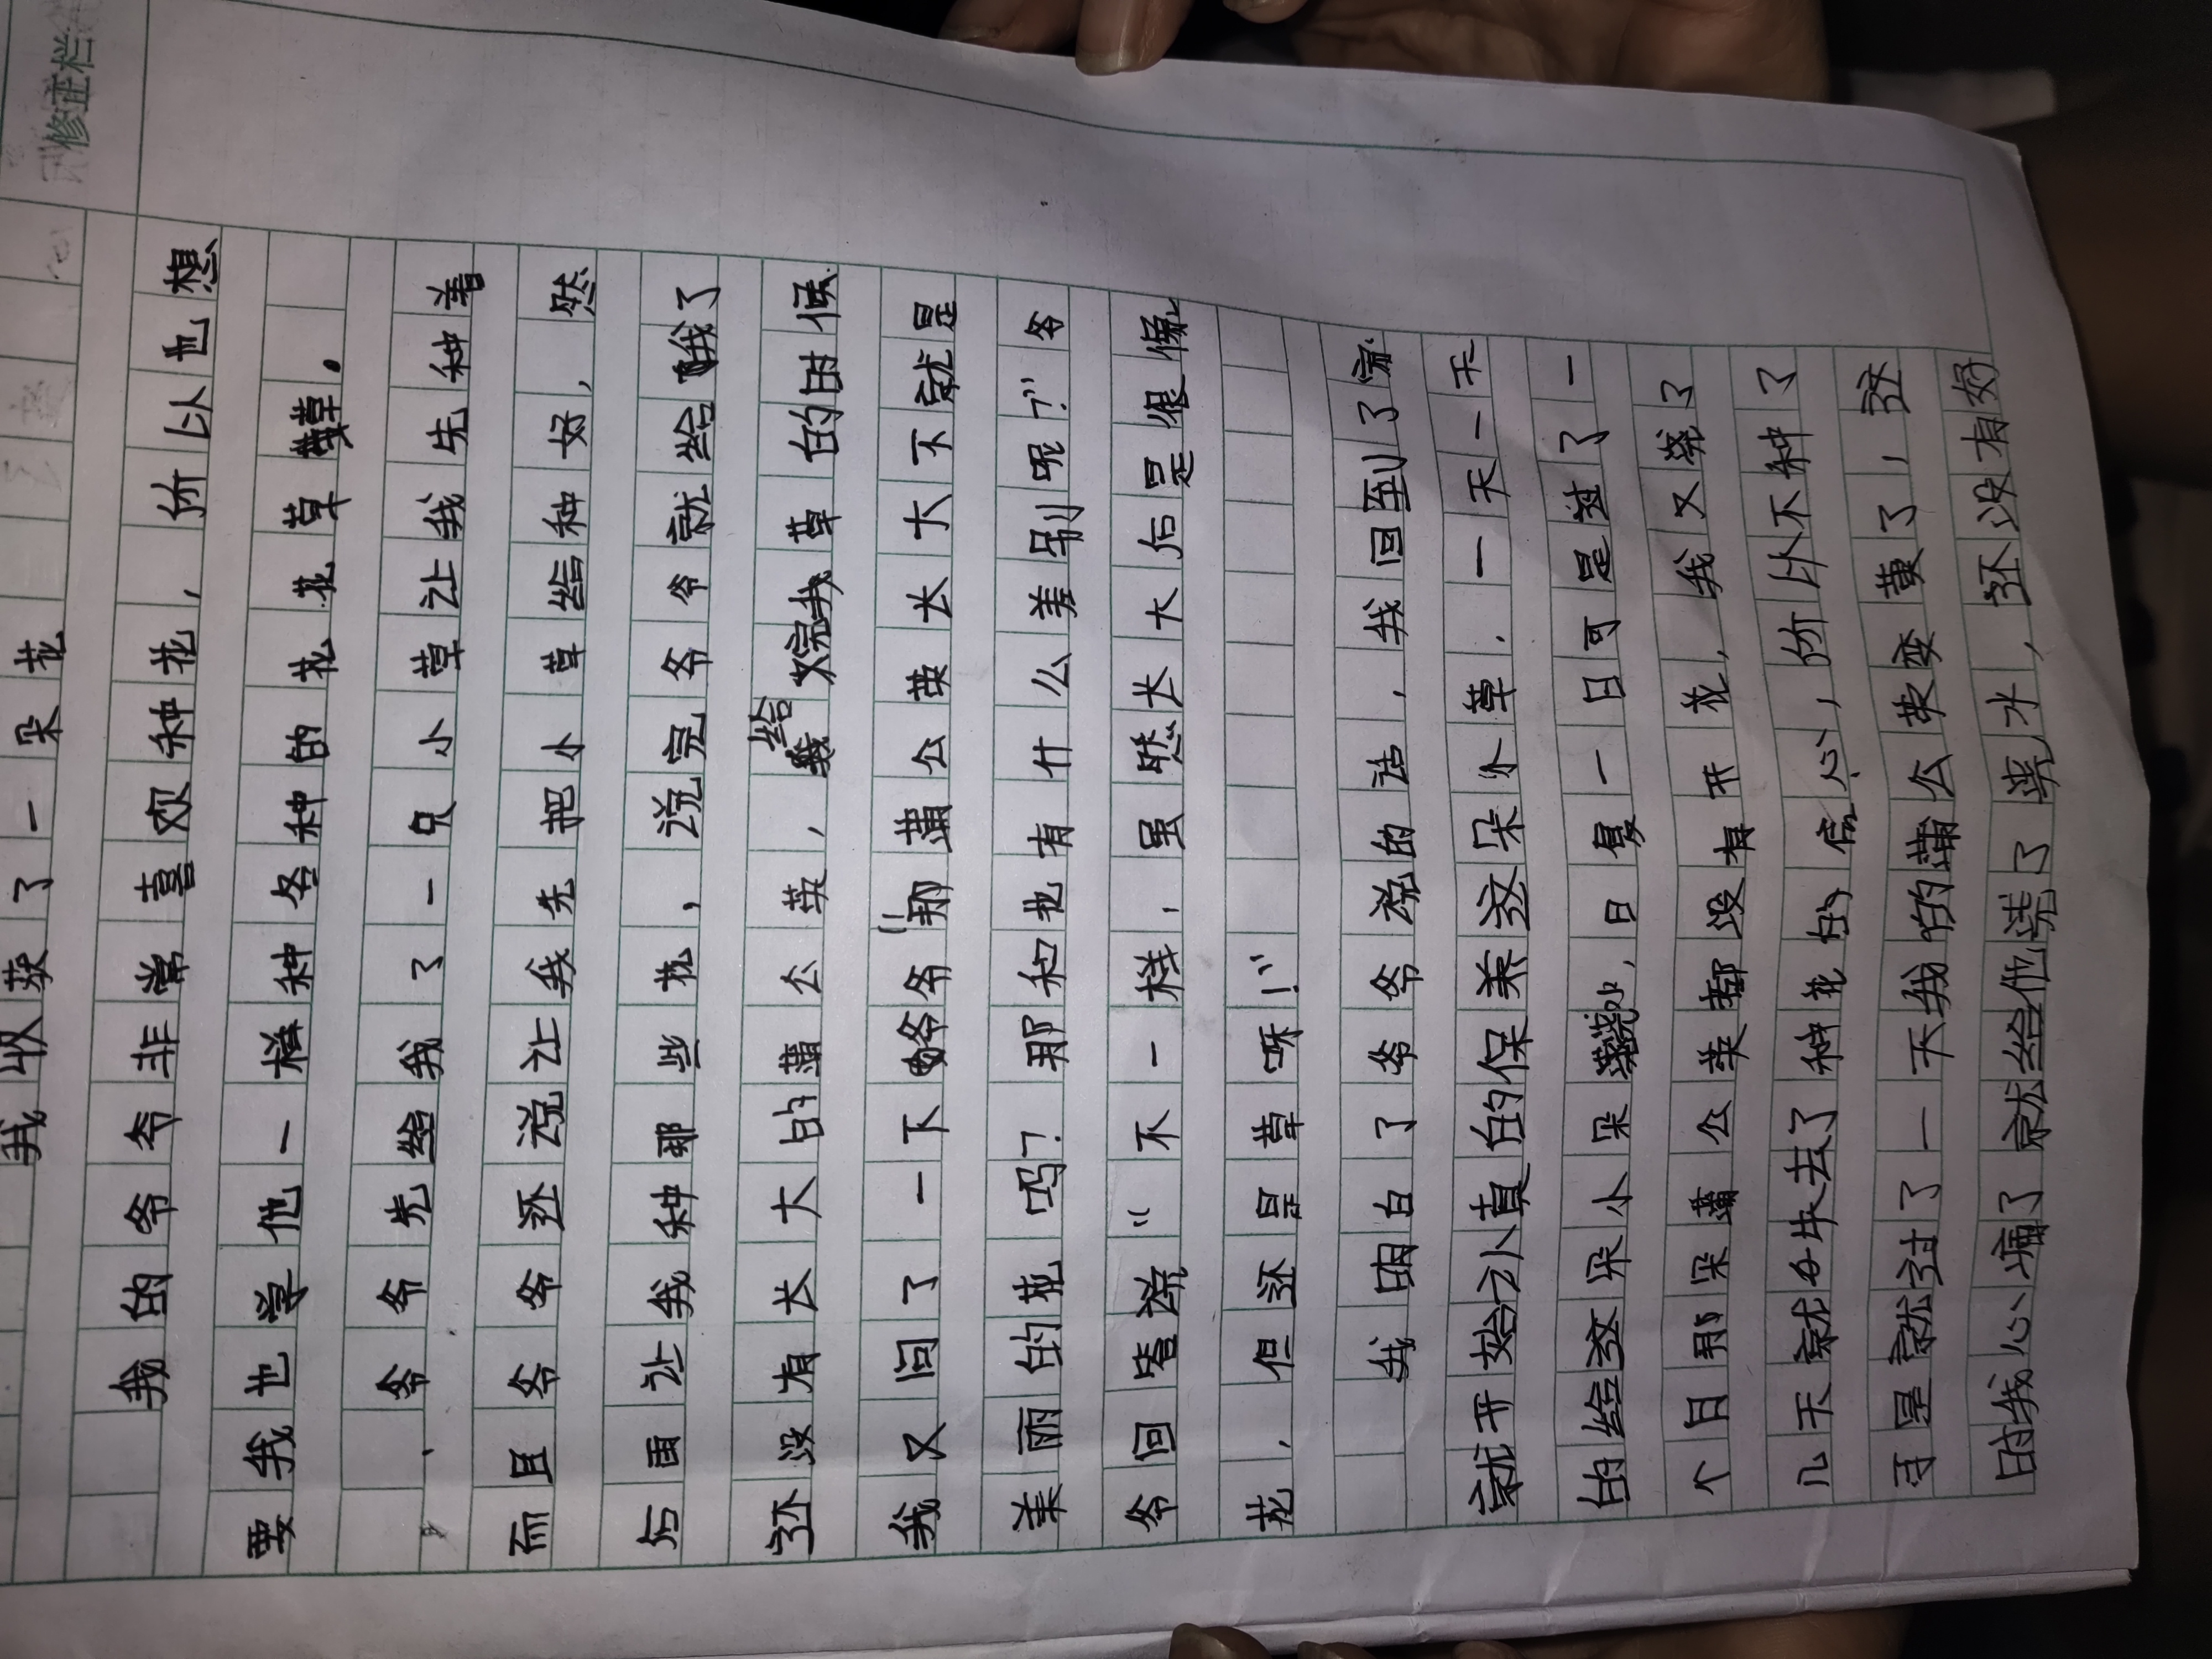 修正栏
我收获了一朵花
我的爷爷非常喜欢种花,所以也想
要我也学他一样种各种的花花草草。
爷爷先给我了一只小草让我先种着
而且爷爷还说让我先把小草给种好,然
后面让我种那些花,说完爷爷就给我了
还没有长大的蒲公英,给完我草的时候
我又问了一下爷爷“那蒲公英长大不就是
美丽的花吗?那和他有什么差别呢?”爷
爷回答说“不一样,虽然长大后是很像
花,但还是草呀!”
我明白了爷爷说的话,我回到了家
就开始认真的保养这朵小草.一天一天
的给这朵小朵浇水,日复一日可是过了一
个月那朵蒲公英都没有开花,我又浇了
几天就失去了种花的信心,所以不种了
于是就过了一天我的蒲公英变黄了,这
时我心痛了就给他浇了浇水,还没有好